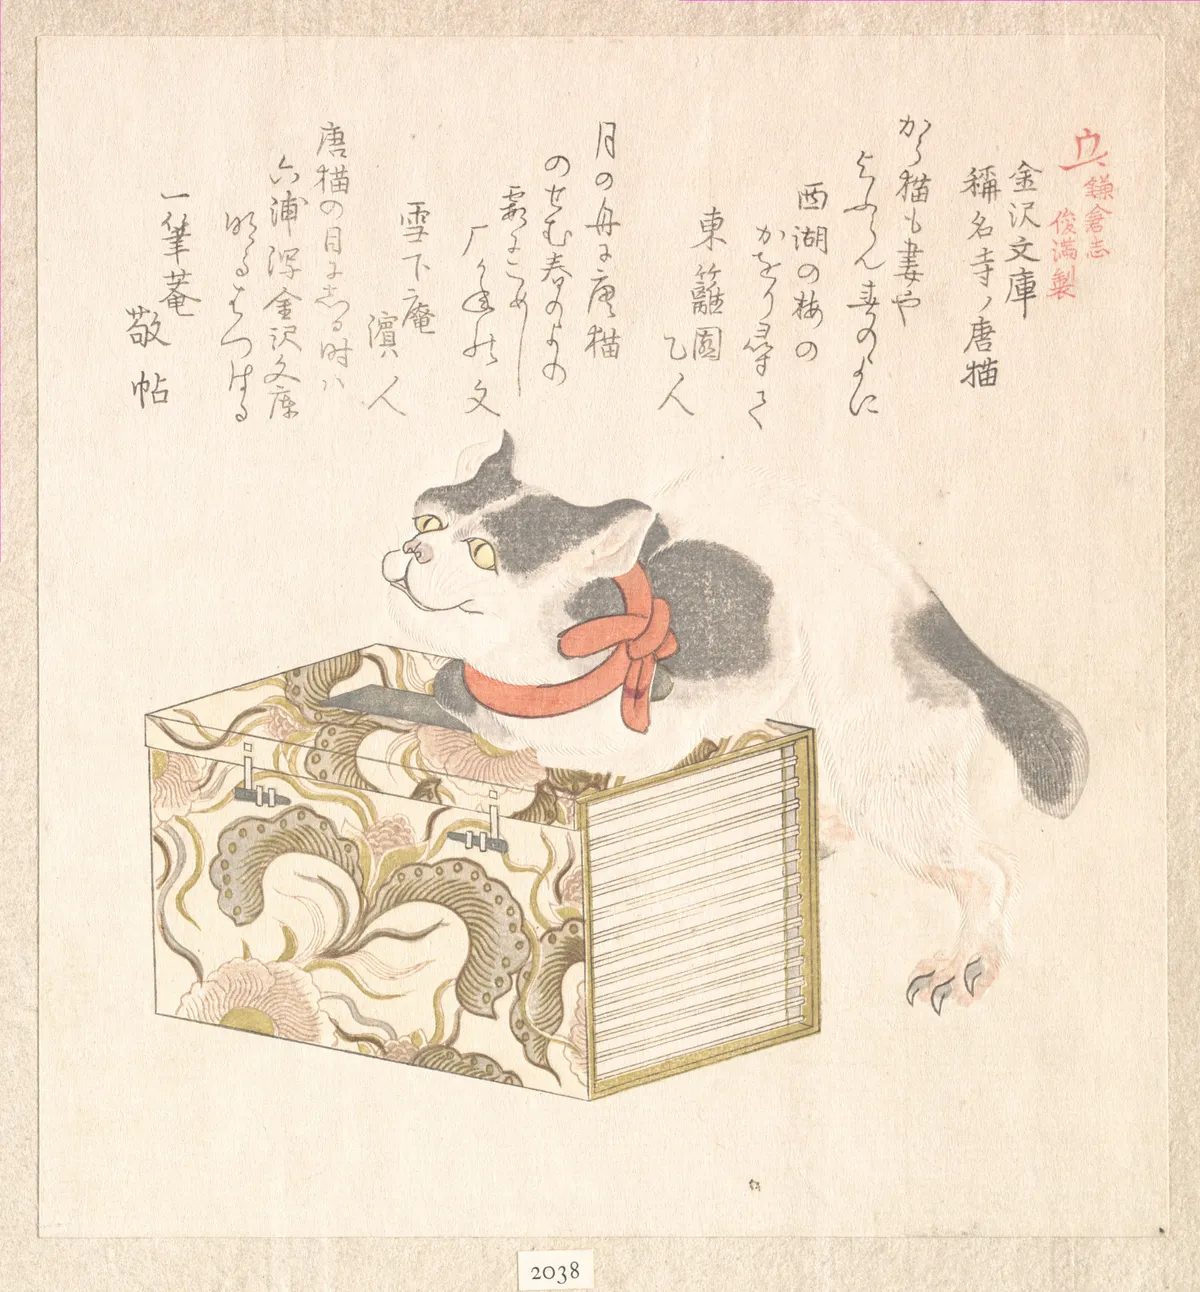 鎌倉志
俊満製
金沢文庫
稱名寺ノ唐猫
から猫も妻や
よふらん春のよに
西湖の梅の
かをり尋て
東籬園
乙人
月の舟に唐猫
のせむ春のよの
霞にこめし
文
雪下庵
濱人
唐猫の目にしる時ハ
六浦潟金沢文庫
明るはつはる
一筆菴
敬帖
2038